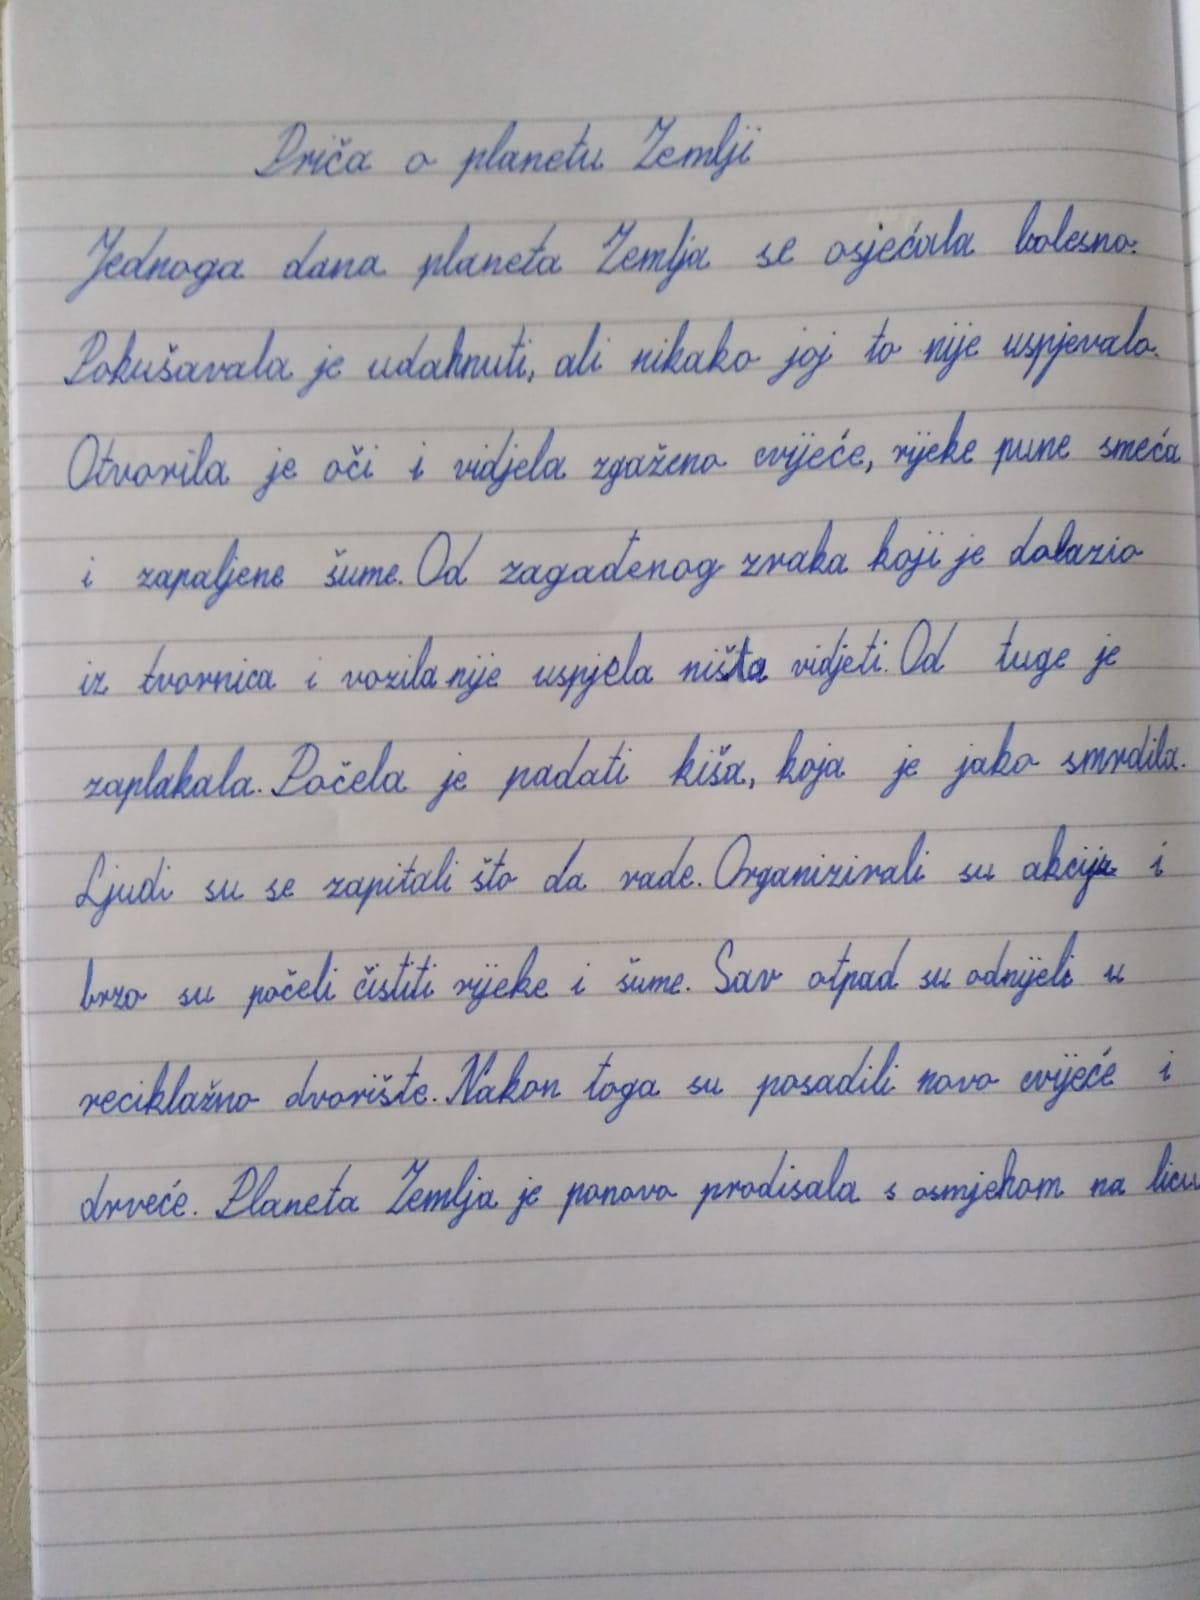 Priča o planetu Zemlji
Jednoga dana planeta Zemlja se osjećala bolesno.
Pokušavala je udahnuti, ali nikako joj to nije uspjevalo.
Otvorila je oči i vidjela zgaženo cvijeće, rijeke pune smeća
i zapaljene šume. Od zagađenog zraka koji je dolazio
iz tvornica i vozila nije uspjela ništa vidjeti. Od tuge je
zaplakala. Počela je padati kiša, koja je jako smrdila.
Ljudi su se zapitali što da rade. Organizirali su akciju i
brzo su počeli čistiti rijeke i šume. Sav otpad su odnijeli u
reciklažno dvorište. Nakon toga su posadili novo cvijeće i
drveće. Planeta Zemlja je ponovo prodisala s osmjehom na licu